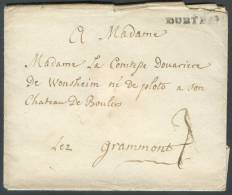 A Madame
Madame La Comtesse Douariere
de Wonsheim né de ploto a son
Chateau de Boulers
Lez grammont